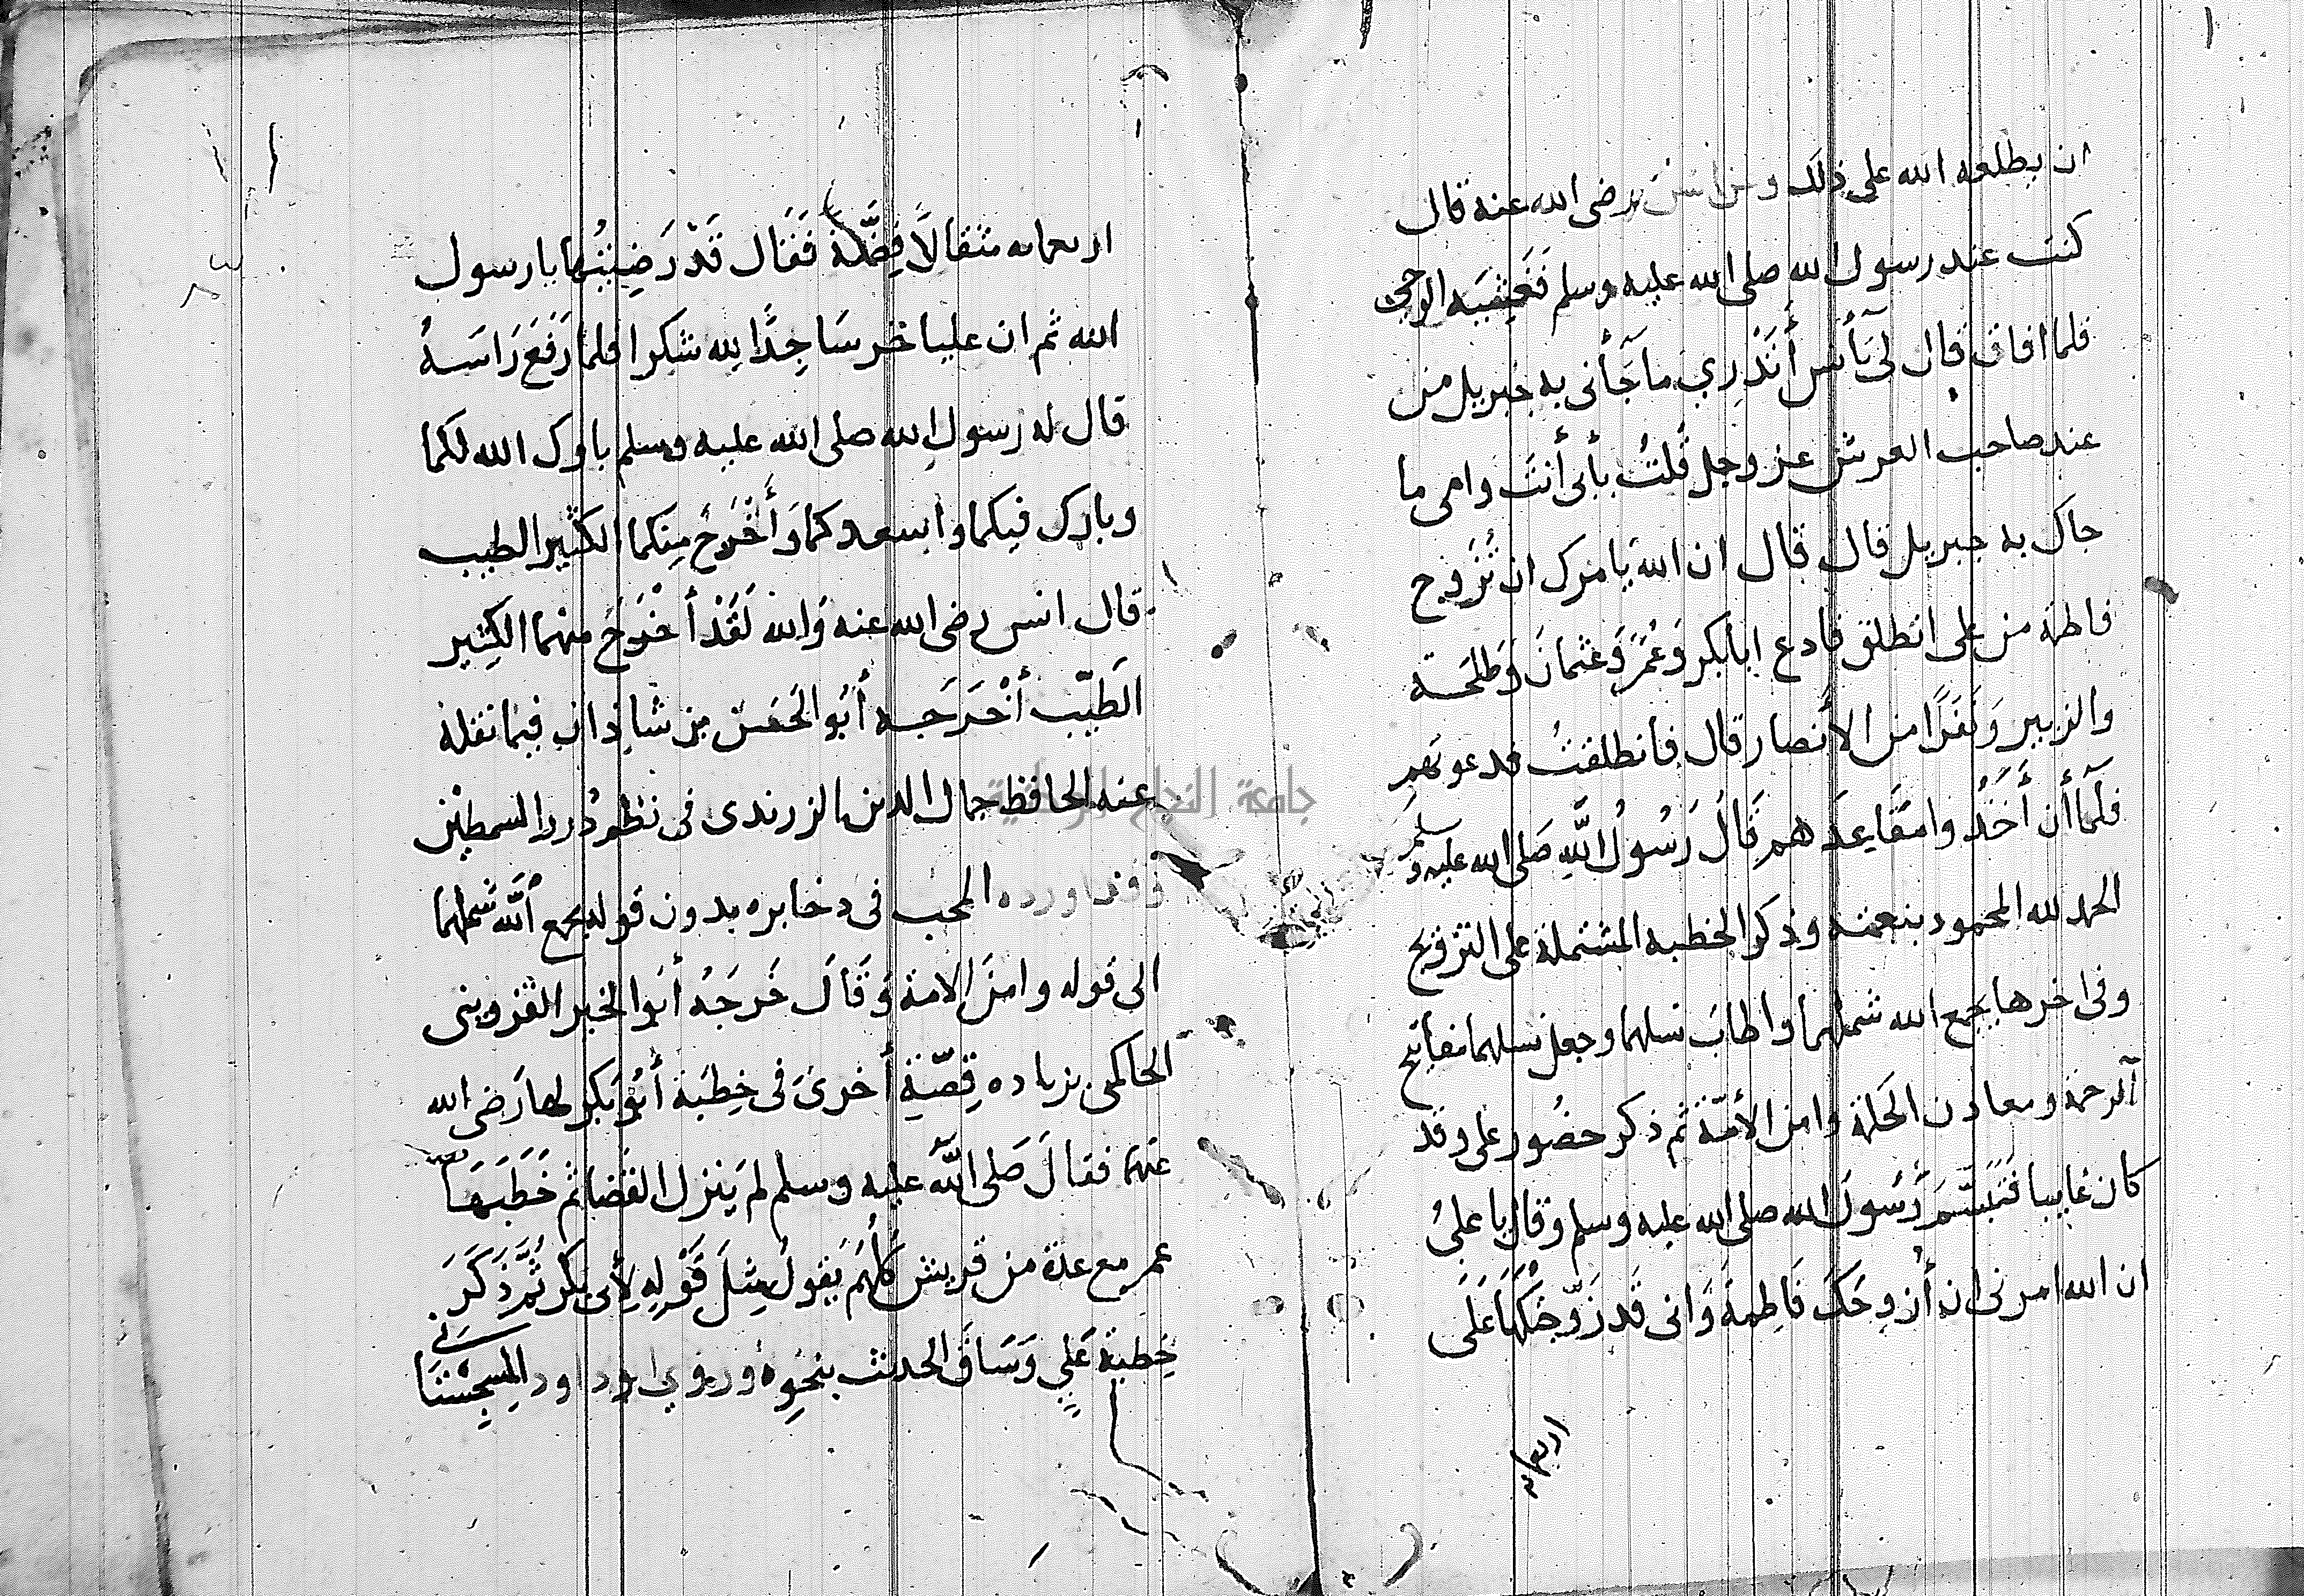 ان يطلعه الله على ذلك وعن انس رضى الله عنه قال
كنت عند رسول الله صلى الله عليه وسلم فَغَشِيَه الوحى
فلما افاق قال لى يَأنس أَتَدْرِي ما جَآنى به جبريل من
عند صاحب العرش عز وجل قُلتُ بأبى أنتَ وامى ما
جاك به جبريل قال قال ان الله يَا مرك ان تُزَوج
فاطمة من على انطلق فادع ابابكر وَعُمَرَ وَعثمانَ وَطلحَة
والزبير وَنَفَرًا من الأنصار قال فانطلقتُ فدعوتهم
فلمآ أن أَخَذُ وا مَقَاعِدَ هم قَالَ رَسُولُ اللَّهِ صَلى الله عليه وَسلم
الحمد لله المحمود بنعمته وذكر الخطبه المشتملة على التزويج
وفى اخرها يجمع الله شملهما واطابَ نسلهما وجعل نسلهما مفاتيح
آلرحمة ومعادن الحكمة وامن الأمّة ثم ذكر حضُور على وقد
كان غايبا فَتَبَسَّمَ رَسُولَ الله صلى الله عليه وسلم وقال يا علىُ
ان الله امرنى ان أُزوجَكَ فَاطِمةَ وَانى قَد زَوّجْتُكَهَا عَلَى
اربعمايه
اربعمايه مثقالاً فِضَّة فَقَال قَدْ رَضِيتُها يا رسول
الله ثم ان عليا خر سَاجِدًا لله شكرا فلما رَفَعَ رَاسَهُ
قال له رسول الله صلى الله عليه وسلم بارك الله لكما
وبارك فيكما واسعدكما وَأَخْرَجَ مِنكما الكثير الطيب
قال انس رضى الله عنه وَالله لَقَدْ أخْرَجَ منهما الكِثير
الَطيّب أخْرَجَه أبُو الحَسن بن شاذان فيما نقلهُ
عنه الحافظ جمال الدين الزرندى فى نظم دُرر السمطين
وقد اورده المحب فى دخايره بدون قوله يجمع اللَّه شملهما
الى قوله وامنَ الامة وَقَالَ خَرجَهُ أبو الخير القزوينى
الحاكمى بزياده قِصّةِ أخرىَ فى خِطبَة أبُو بَكر لها رَضى الله
عنهما فقالَ صَلى اللَّهُ عليه وسلم لم يَنزل القَضا ثم خَطَبَهَا
عمر مع عدة من قريش كُلُهُم يَقولُ مِثلَ قَوْلِهِ لأبى بكر ثُمّ ذَكَرَ
خِطبة عَلِي وَسَاقَ الحديث بنحوِهِ وروى ابو داود السِجِسْتَانى